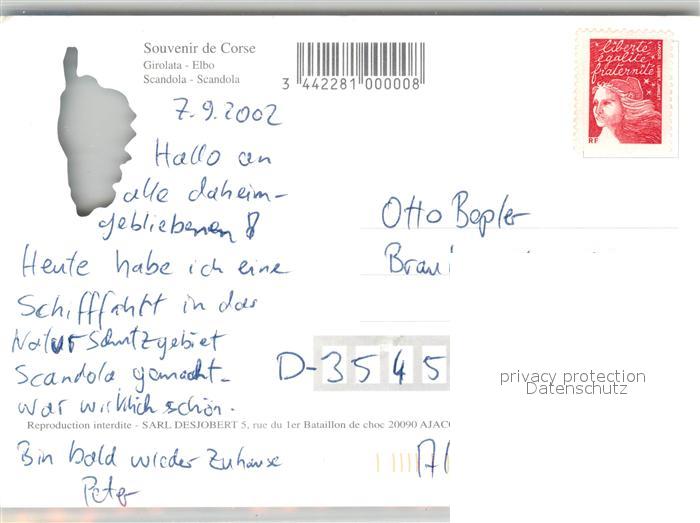 Souvenir de Corse
Girolata - Elbo
Scandola - Scandola
3 442281 000008
liberté
égalité
fraternité
RF
7.9.2002
Hallo an
alle daheim-
gebliebenen!
Heute habe ich eine
Schifffahrt in das
Naturschutzgebiet
Scandola gemacht.
War wirklich schön.
Otto Bepler
D-3545
privacy protection
Datenschutz
Reproduction interdite - SARL DESJOBERT 5, rue du 1er Bataillon de choc 20090 AJAC
Bin bald wieder Zuhause
Peter